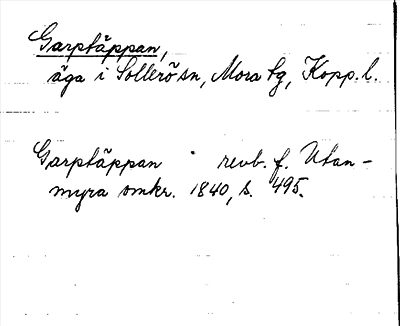 Garptäppan,
äga i Sollerö sn, Mora tg, Kopp. l.
Garptäppan revb. f. Utan-
myra omkr. 1840, s. 495.